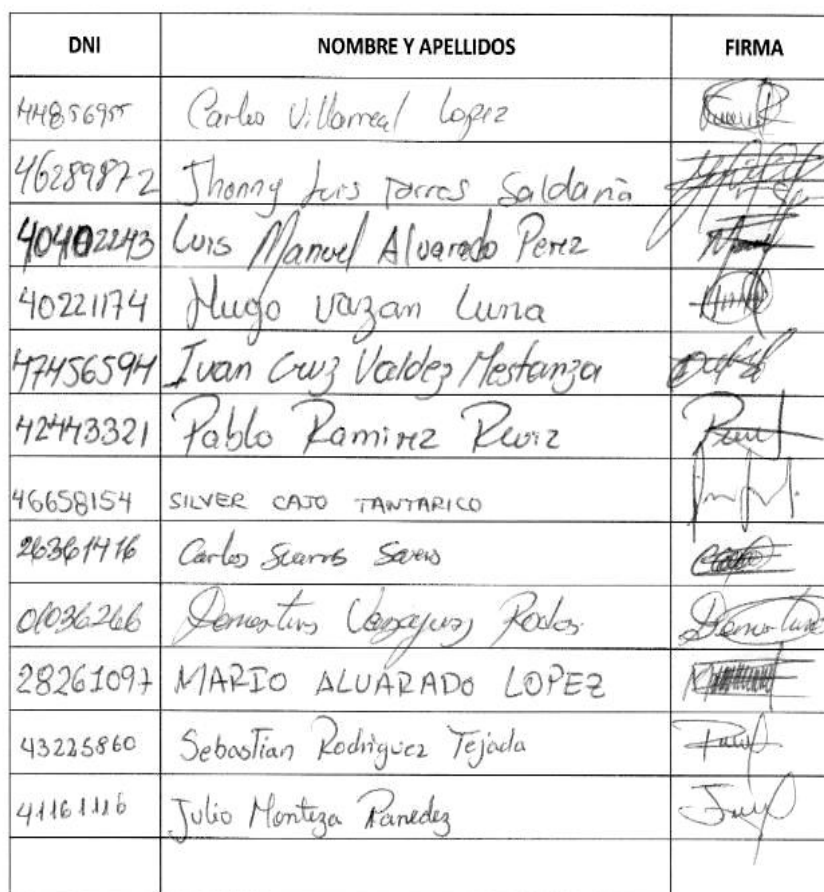 DNI NOMBRE Y APELLIDOS FIRMA
44856955 Carlos Villarreal Lopez
46289872 Jhonny Luis Torres Saldaña
40402243 Luis Manuel Alvarado Perez
40221174 Hugo Vazan Luna
47456594 Ivan Cruz Valdez Mestanza
42443321 Pablo Ramirez Ruiz
46658154 SILVER CAJO TANTARICO
26361416 Carlos
01036266 Rodas
28261097 MARIO ALVARADO LOPEZ
43225860 Sebastian Rodriguez Tejada
41161116 Julio Monteza Paredez